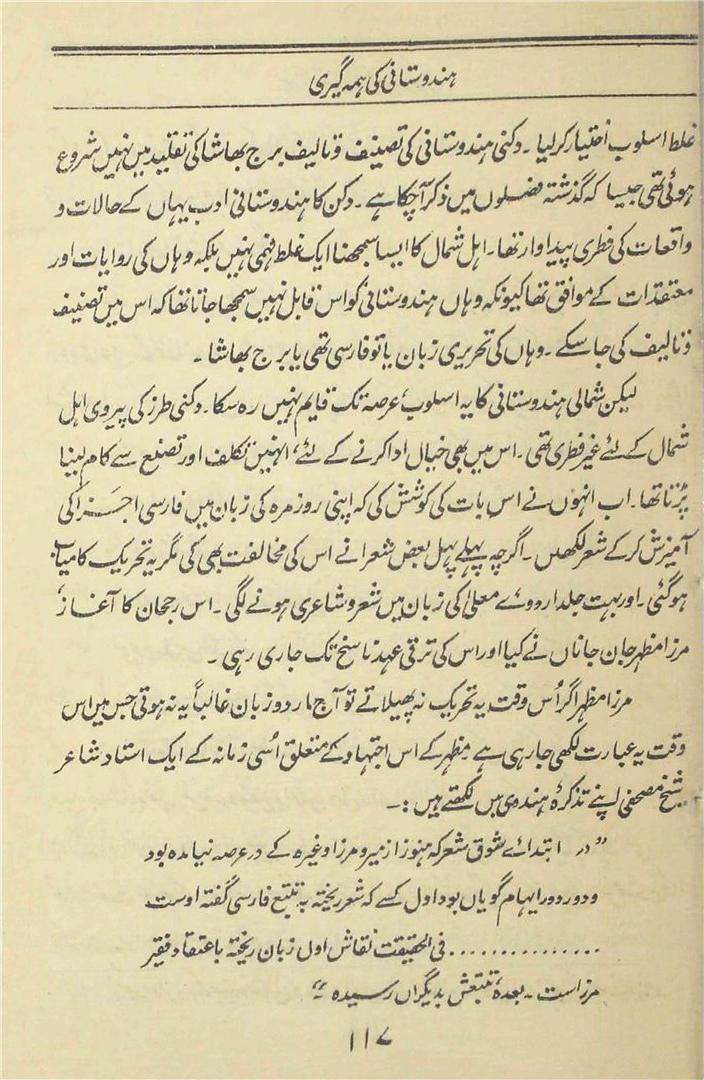 ہندوستانی کی ہمہ گیری
غلط اسلوب اختیار کرلیا ۔ دکنی ہندوستانی کی تصنیف و تالیف برج بھاشا کی تقلید میں نہیں شروع
ہوئی تھی جیسا کہ گذشتہ فصلوں میں ذکر آچکا ہے ۔ دکن کا ہندوستانی ادب یہاں کے حالات و
واقعات کی فطری پیداوار تھا ۔ اہل شمال کا ایسا سمجھنا ایک غلط فہمی نہیں بلکہ وہاں کی روایات اور
معتقدات کے موافق تھا کیونکہ وہاں ہندوستانی کو اس قابل نہیں سمجھا جاتا تھا کہ اس میں تصنیف
و تالیف کی جا سکے ۔ وہاں کی تحریری زبان یا تو فارسی تھی یا برج بھاشا ۔
لیکن شمالی ہندوستانی کا یہ اسلوب عرصہ تک قایم نہیں رہ سکا ۔ دکنی طرز کی پیروی اہل
شمال کے لئے غیر فطری تھی ۔ اس میں بھی خیال ادا کرنے کے لئے، انہیں تکلف اور تصنع سے کام لینا
پڑتا تھا ۔ اب انہوں نے اس بات کی کوشش کی کہ اپنی روزمرہ کی زبان میں فارسی اجزا کی
آمیزش کرکے شعر لکھیں ۔ اگرچہ پہلے پہل بعض شعرا نے اس کی مخالفت بھی کی مگر یہ تحریک کامیاب
ہوگئی ۔ اور بہت جلد اردوئے معلیٰ کی زبان میں شعر و شاعری ہونے لگی ۔ اس رجحان کا آغاز،
مرزا مظہر جان جاناں نے کیا اور اس کی ترقی عہد ناسخ تک جاری رہی ۔
مرزا مظہر اگر اُس وقت یہ تحریک نہ پھیلاتے تو آج اردو زبان غالباً یہ نہ ہوتی جس میں اس
وقت یہ عبارت لکھی جا رہی ہے ۔ مظہر کے اس اجتہاد کے متعلق اُسی زمانہ کے ایک استاد شاعر
شیخ مصحفی اپنے تذکرۂ ہندوی میں لکھتے ہیں :۔
” در ابتدائے شوق شعر کہ ہنوز از میر و مرزا وغیرہ کے در عرصہ نیامدہ بود
و دور دور ایہام گویاں بود اول کسے کہ شعر ریختہ بہ تتبع فارسی گفتہ اوست
.............. فی الحقیقت نقاش اول زبان ریختہ باعتقاد فقیر
مرزاست ۔ بعدہٗ تتبعش بدیگراں رسیدہ ۔“
۱۱۷